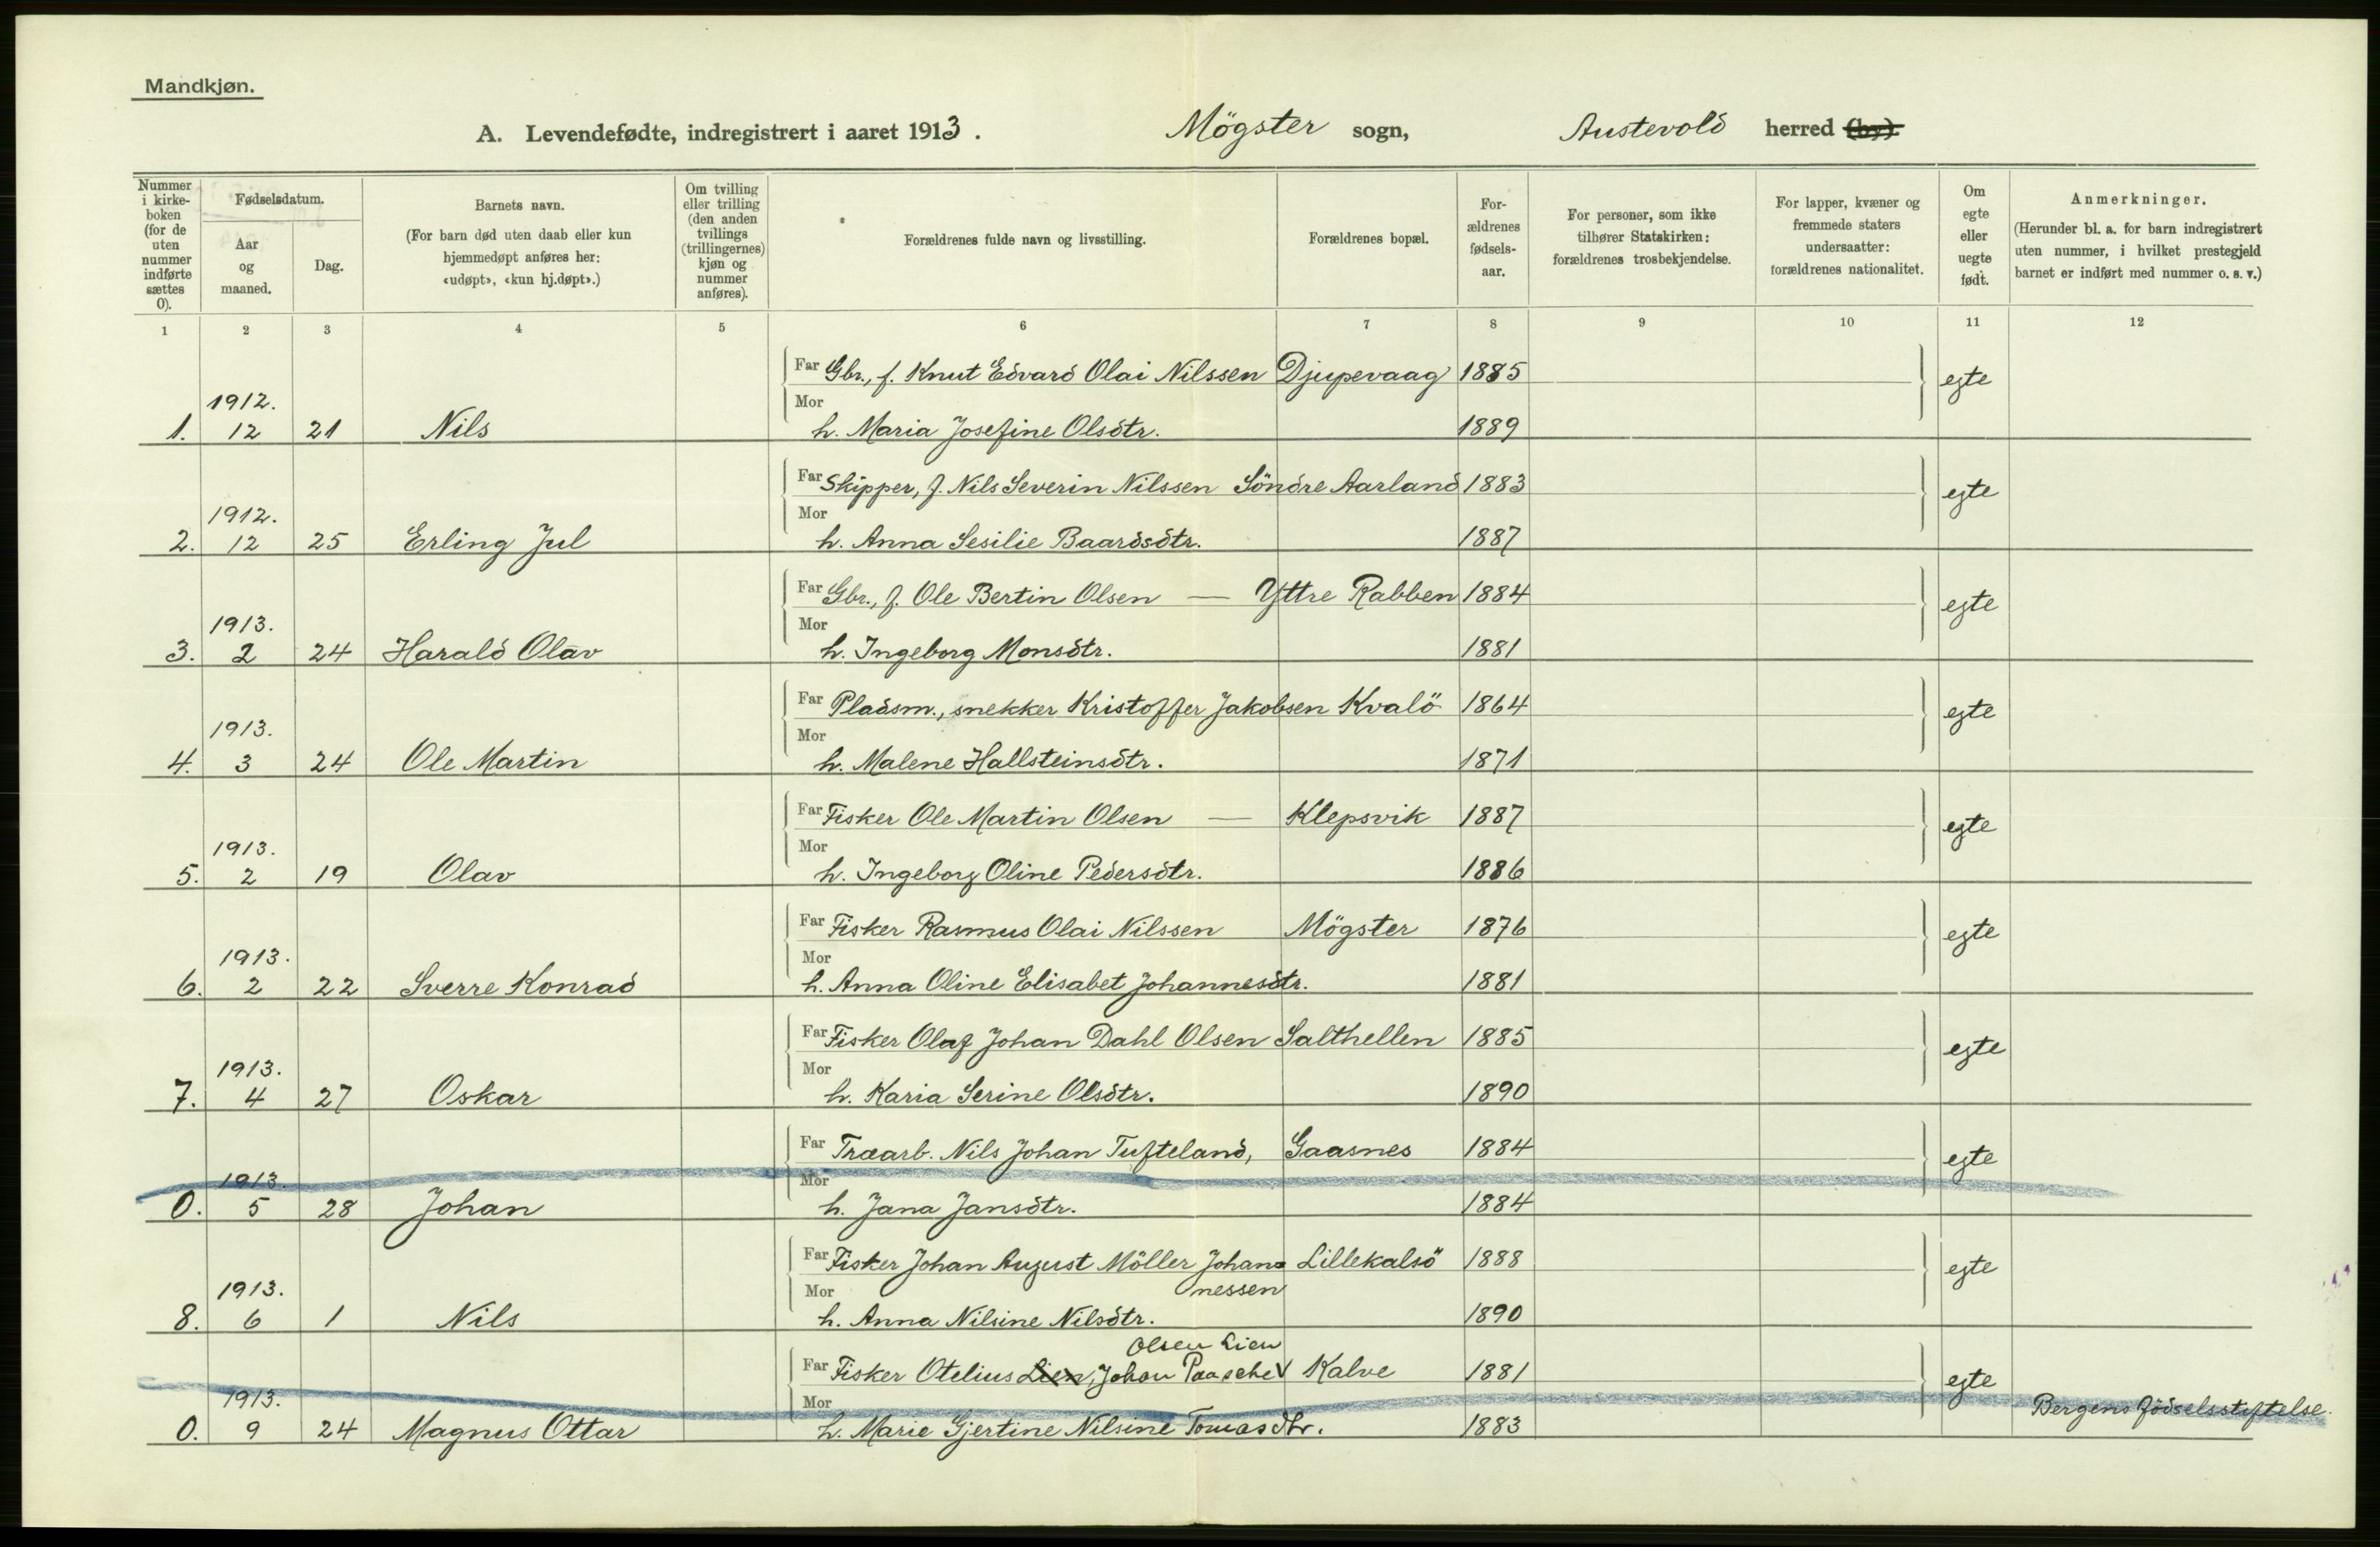 Mandkjøn.
A. Levendefødte, indregistrert i aaret 1913. Mögster sogn, Austevold herred (by).
Nummer i kirkeboken (for de uten nummer indførte sættes 0).
Fødselsdatum.
Aar og maaned.
Dag.
Barnets navn.
(For barn død uten daab eller kun hjemmedøpt anføres her: «udøpt», «kun hj.døpt».)
Om tvilling eller trilling (den anden tvillings (trillingernes) kjøn og nummer anføres).
Forældrenes fulde navn og livsstilling.
Forældrenes bopæl.
Forældrenes fødselsaar.
For personer, som ikke tilhører Statskirken: forældrenes trosbekjendelse.
For lapper, kvæner og fremmede staters undersaatter: forældrenes nationalitet.
Om egte eller uegte født.
Anmerkninger.
(Herunder bl. a. for barn indregistrert uten nummer, i hvilket prestegjeld barnet er indført med nummer o. s. v.)
1 2 3 4 5 6 7 8 9 10 11 12
Far Gbr., f. Knut Edvard Olai Nilssen Djupevaag 1885 egte
1912. Mor
1. 12 21 Nils h. Maria Josefine Olsdtr. 1889
Far Skipper, f. Nils Severin Nilssen Söndre Aarland 1883 egte
1912. Mor
2. 12 25 Erling Jul h. Anna Sesilie Baardsdtr. 1887
Far Gbr., f. Ole Bertin Olsen — Yttre Rabben 1884 egte
1913. Mor
3. 2 24 Harald Olav h. Ingeborg Monsdtr. 1881
Far Pladsm., snekker Kristoffer Jakobsen Kvalö 1864 egte
1913. Mor
4. 3 24 Ole Martin h. Malene Hallsteinsdtr. 1871
Far Fisker Ole Martin Olsen — Klepsvik 1887 egte
1913. Mor
5. 2 19 Olav h. Ingeborg Oline Pedersdtr. 1886
Far Fisker Rasmus Olai Nilssen Mögster 1876 egte
1913. Mor
6. 2 22 Sverre Konrad h. Anna Oline Elisabet Johannesdtr. 1881
Far Fisker Olaf Johan Dahl Olsen Salthellen 1885 egte
1913. Mor
7. 4 27 Oskar h. Karia Serine Olsdtr. 1890
Far Træarb. Nils Johan Tufteland, Gaasnes 1884 egte
1913. Mor
0. 5 28 Johan h. Jana Jansdtr. 1884
Far Fisker Johan August Möller Johan= Lillekalsö 1888 egte
1913. Mor nessen
8. 6 1 Nils h. Anna Nilsine Nilsdtr. 1890
Olsen Lien
Far Fisker Otelius Lien, Johan Paasche V Kalve 1881 egte
1913. Mor Bergens födselsstiftelse.
0. 9 24 Magnus Ottar h. Marie Gjertine Nilsine Tomasdtr. 1883